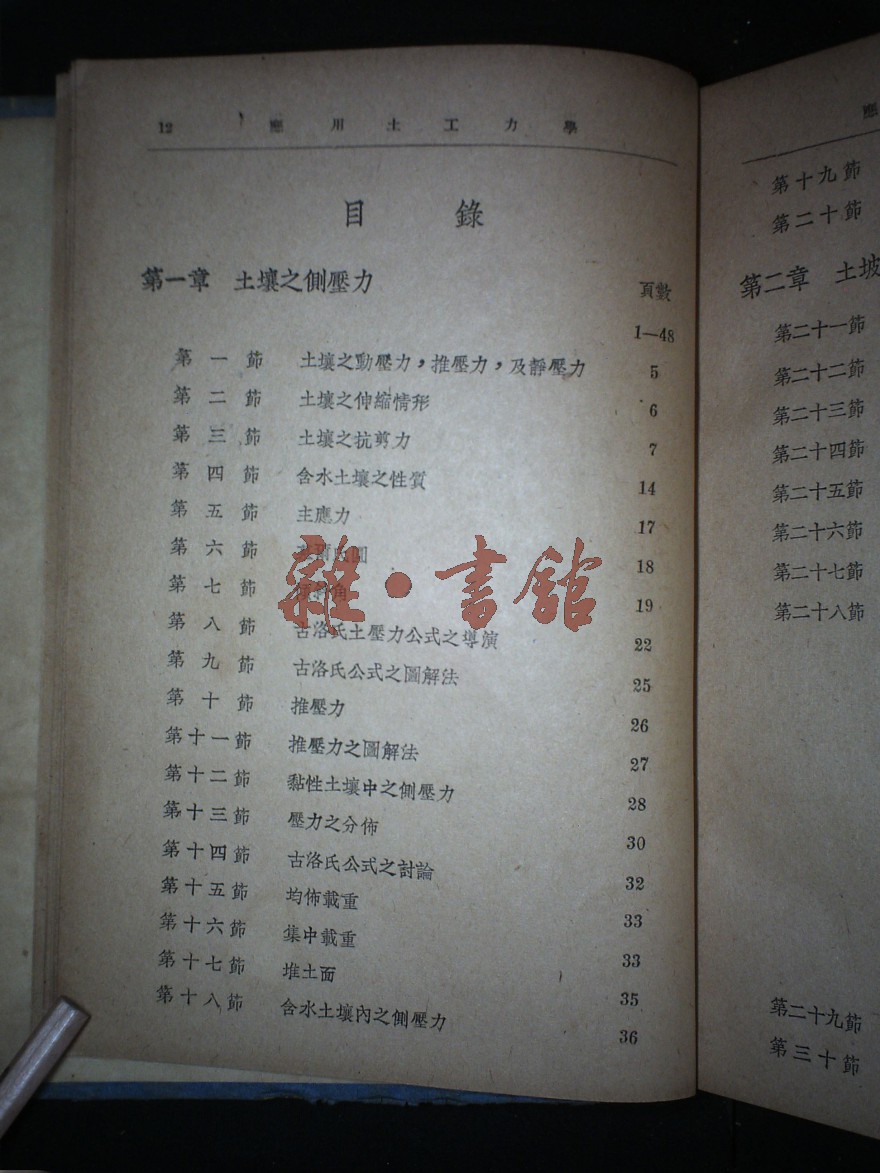 12 應用土工力學
目錄
第一章 土壤之側壓力
頁數
1—48
第一節 土壤之動壓力，推壓力，及靜壓力 5
第二節 土壤之伸縮情形 6
第三節 土壤之抗剪力 7
第四節 含水土壤之性質 14
第五節 主應力 17
第六節 圓 18
第七節 角 19
第八節 古洛氏土壓力公式之導演 22
第九節 古洛氏公式之圖解法 25
第十節 推壓力 26
第十一節 推壓力之圖解法 27
第十二節 黏性土壤中之側壓力 28
第十三節 壓力之分佈 30
第十四節 古洛氏公式之討論 32
第十五節 均佈載重 33
第十六節 集中載重 33
第十七節 堆土面 35
第十八節 含水土壤內之側壓力 36
雜·書館
應
第十九節
第二十節
第二章 土坡
第二十一節
第二十二節
第二十三節
第二十四節
第二十五節
第二十六節
第二十七節
第二十八節
第二十九節
第三十節